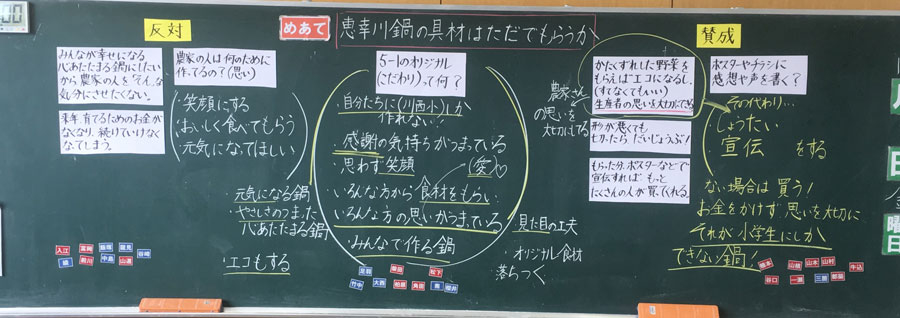 反対
めあて
恵幸川鍋の具材はただでもらうか
賛成
みんなが幸せになる
心あたたまる鍋にしたい
から農家の人をそんな
気分にさせたくない。
来年育てるためのお金が
なくなり、続けていけなく
なってしまう。
農家の人は何のために
作ってるの?(思い)
・笑顔にする
・おいしく食べてもらう
・元気になってほしい
元気になる鍋
・やさしさのつまった
心あたたまる鍋
・エコもする
5-1のオリジナル
(こだわり)って何?
・自分たちに(川西小)しか
作れない!
・感謝の気持ちがつまっている
・思わず笑顔
(愛)♡
・いろんな方から食材をもらい
・いろんな方の思いがつまっている
・みんなで作る鍋
・見た目の工夫
・オリジナル食材
落ちつく
農家さん
の思いを
大切にしてる
かたくずれした野菜を
もらえばエコになるし、
(すてなくてもいい)
生産者の思いを大切にできる
形が悪くても
切ったらだいじょうぶ!
もらった分、ポスターなどで
宣伝すればもっと
たくさんの人が買ってくれる。
ポスターやチラシに
感想や声を書く?
その代わり…
・しょうたい
・宣伝 をする
ない場合は買う!
お金をかけず思いを大切に
それが小学生にしか
できない鍋!
入江
中島
山\
谷崎
竹中
大西
柏原
角田
松下
櫻井
山本
山村
牛込
谷口
一瀬
三原